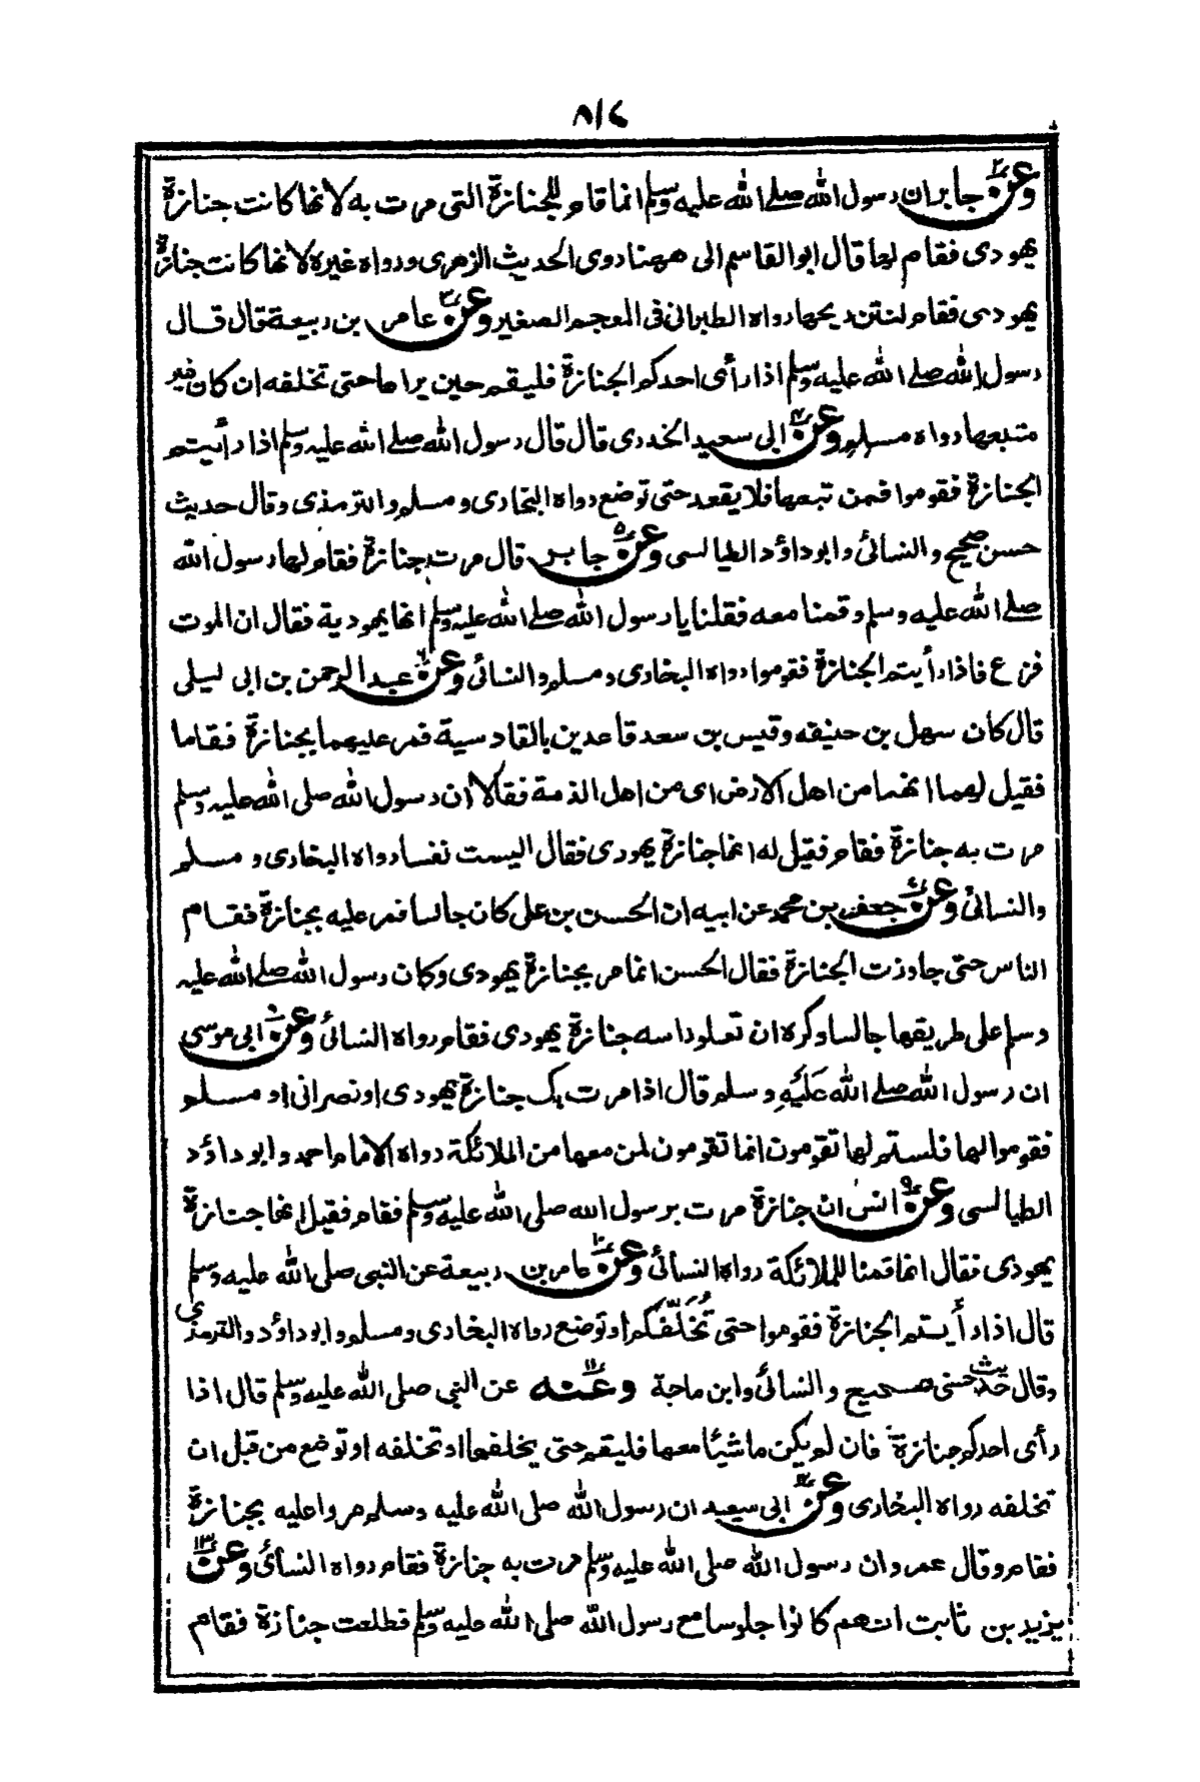 ٨١٤
وعن٢ جابر ان رسول الله صلى الله عليه وسلم انما قام للجنازة التى مرت به لانها كانت جنازة
يهودى فقام لها قال ابو القاسم الى ههنا روى الحديث الزهرى ورواه غيره لانها كانت جنازة
يهودى فقام لنتن ريحها رواه الطبرانى فى المعجم الصغير وعن٣ عامر بن ربيعة قال قال
رسول الله صلى الله عليه وسلم اذا رأى احدكم الجنازة فليقم حين يراها حتى تخلفه ان كان غير
متبعها رواه مسلم وعن٤ ابى سعيد الخدرى قال قال رسول الله صلى الله عليه وسلم اذا رأيتم
الجنازة فقوموا فمن تبعها فلا يقعد حتى توضع رواه البخارى ومسلم والترمذى وقال حديث
حسن صحيح والنسائى وابو داؤد الطيالسى وعن٥ جابر قال مرت جنازة فقام لها رسول الله
صلى الله عليه وسلم وقمنا معه فقلنا يا رسول الله صلى الله عليه وسلم انها يهودية فقال ان الموت
فزع فاذا رأيتم الجنازة فقوموا رواه البخارى ومسلم والنسائى وعن٦ عبد الرحمن بن ابى ليلى
قال كان سهل بن حنيفه وقيس بن سعد قاعدين بالقادسية فمر عليهما بجنازة فقاما
فقيل لهما انهما من اهل الارض اى من اهل الذمة فقالا ان رسول الله صلى الله عليه وسلم
مرت به جنازة فقام فقيل له انها جنازة يهودى فقال اليست نفسا رواه البخارى و مسلم
والنسائى وعن٧ جعفر بن محمد عن ابيه ان الحسن بن على كان جالسا فمر عليه بجنازة فقام
الناس حتى جاوزت الجنازة فقال الحسن انما مر بجنازة يهودى وكان رسول الله صلى الله عليه
وسلم على طريقها جالسا وكره ان تعلو راسه جنازة يهودى فقام رواه النسائى وعن٨ ابى موسى
ان رسول الله صلى الله عليه وسلم قال اذا مرت بك جنازة يهودى او نصرانى او مسلم
فقوموا لها فلستم لها تقومون انما تقومون لمن معها من الملائكة رواه الامام احمد وابو داؤد
الطيالسى وعن٩ انس ان جنازة مرت برسول الله صلى الله عليه وسلم فقام فقيل انها جنازة
يهودى فقال انما قمنا للملائكة رواه النسائى وعن١٠ عامر بن ربيعة عن النبى صلى الله عليه وسلم
قال اذا رأيتم الجنازة فقوموا حتى تُخَلِّفَكُم او توضع رواه البخارى ومسلم وابو داؤد والترمذي
وقال حديث حسن صحيح والنسائى وابن ماجة وعنه١١ عن النبى صلى الله عليه وسلم قال اذا
رأى احدكم جنازة فان لم يكن ماشيا معها فليقم حتى يخلفها او تخلفه او توضع من قبل ان
تخلفه رواه البخارى وعن١٢ ابى سعيد ان رسول الله صلى الله عليه وسلم مروا عليه بجنازة
فقام وقال عمرو ان رسول الله صلى الله عليه وسلم مرت به جنازة فقام رواه النسائى وعن١٣
يزيد بن ثابت انهم كانوا جلوسا مع رسول الله صلى الله عليه وسلم فطلعت جنازة فقام